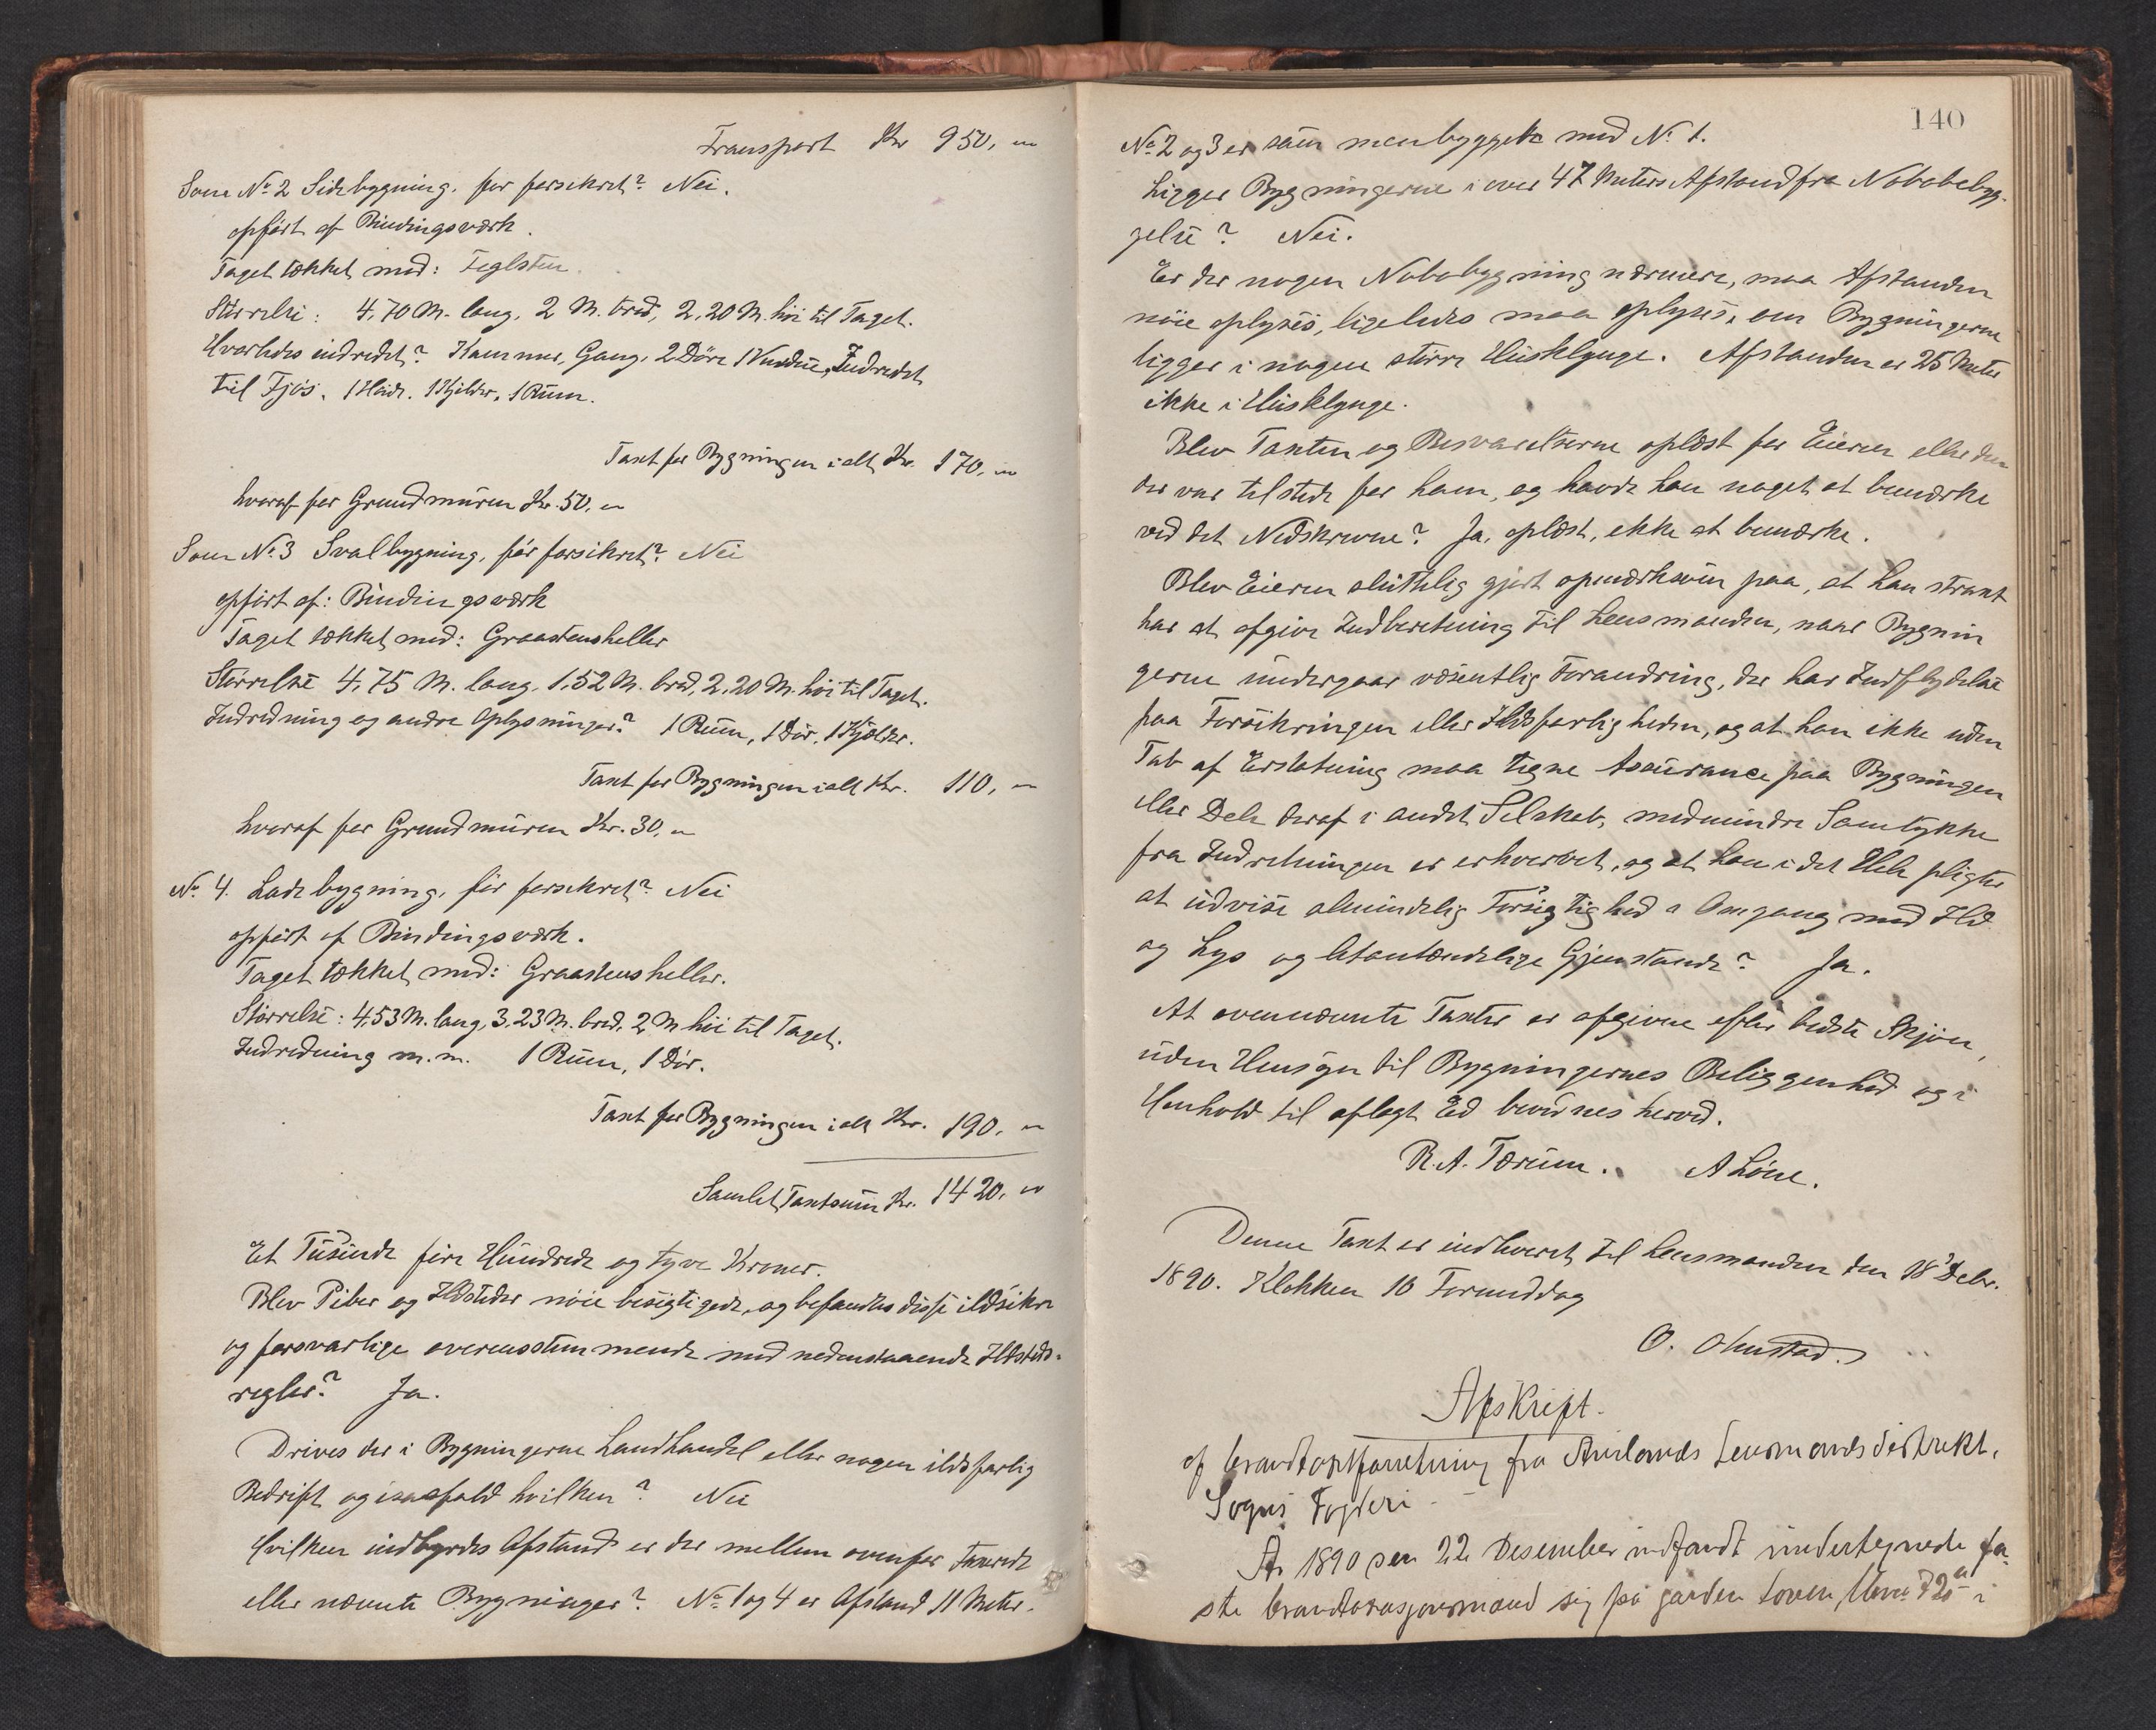 Transport Kr 950, "
Som No 2 Sidebygning, før forsikret? Nei.
opført af Bindingsværk.
Taget tækket med: Teglsten.
Størrelse: 4,70 M. lang, 2 M. bred, 2,20 M. høi til Taget.
Hvorledes indredet? Kammer, Gang, 2 Döre 1 Vindue, Indredet
til Fjös. 1 Kjelder, 1 Rum.
Taxt for Bygningen i alt Kr. 170, "
hvoraf for Grundmuren Kr. 50, "
Som No 3 Svalbygning, før forsikret? Nei
opført af: Bindingsværk
Taget tækket med: Graastensheller
Størrelse 4,75 M. lang, 1,52 M. bred, 2,20 M. høi til Taget.
Indredning og andre Oplysninger? 1 Rum, 1 Dør, 1 Kjelder.
Taxt for Bygningen i alt Kr. 110, "
hvoraf for Grundmuren Kr. 30, "
No 4. Ladebygning, før forsikret? Nei
opført af Bindingsværk.
Taget tækket med: Graastensheller.
Størrelse: 4,53 M. lang, 3,23 M. bred, 2 M høi til Taget.
Indredning m. m. 1 Rum, 1 Dør.
Taxt for Bygningen i alt Kr. 190, "
Samlet Taxtsum Kr. 1420, "
Et Tusinde fire Hundrede og tyve Kroner.
Blev Piber og Ildsteder nøie besigtigede, og befandtes disse ildsikre
og forsvarlige overensstemmende med nedenstaaende Ildsteds-
regler? Ja.
Drives der i Bygningerne Landhandel eller nogen ildsfarlig
Bedrift og isaafald hvilken? Nei
Hvilken indbyrdes Afstand er der mellem ovenfor taxerede
eller nævnte Bygninger? No 1 og 4 er Afstand 11 Meter.
140
No 2 og 3 er sammenbyggede med No 1.
Ligger Bygningerne i over 47 Meters Afstand fra Nabobebyg-
gelse? Nei.
Er der nogen Nabobygning nærmere, maa Afstanden
nöie oplyses, ligeledes maa oplyses, om Bygningerne
ligger i nogen större Husklynge. Afstanden er 25 Meter
ikke i Husklynge.
Blev Taxten og Besvarelserne oplæst for Eieren eller den
der var tilstede for ham, og havde han noget at bemærke
ved det Nedskrevne? Ja, oplæst, ikke at bemærke.
Blev Eieren sluttelig gjort opmærksom paa, at han straxt
har at afgive Indberetning til Lensmanden, naar Bygnin
gerne undergaar væsentlig Forandring, der har Indflydelse
paa Forsikringen eller Ildsfarligheden, og at han ikke uden
Tab af Erstatning maa tegne Assurance paa Bygningen
eller Dele deraf i andet Selskab, medmindre Samtykke
fra Indretningen er erhvervet, og at han i det Hele pligter
at udvise almindelig Forsigtighed i Omgang med Ild
og Lys og letantændelige Gjenstande? Ja.
At ovennævnte Taxter er afgivne efter bedste Skjön,
uden Hensyn til Bygningernes Beliggenhed og i
Henhold til aflagt Ed bevidnes herved.
R. A. Tærum. A Löne.
Denne Taxt er indleveret til Lensmanden den 18 Debr.
1890. Klokken 10 Formiddag
O. Ohnstad.
Afskrift.
af brandtaxtforretning fra Aurlands Lensmandsdistrikt,
Sogns Fogderi.
År 1890 den 22 Desember indfandt undertegnede fa-
ste brandtaxasjonsmænd sig på gården